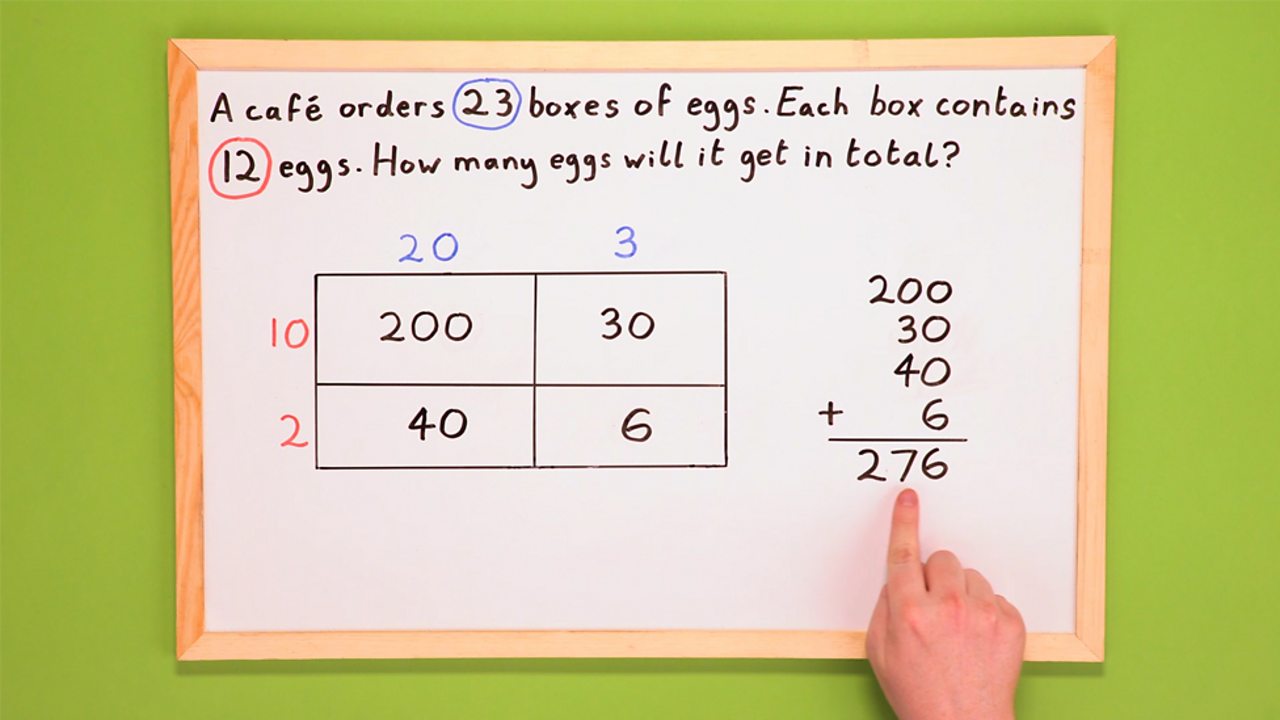 A café orders 23 boxes of eggs. Each box contains
12 eggs. How many eggs will it get in total?
20 3
10 200 30
2 40 6
200
30
40
+ 6
276